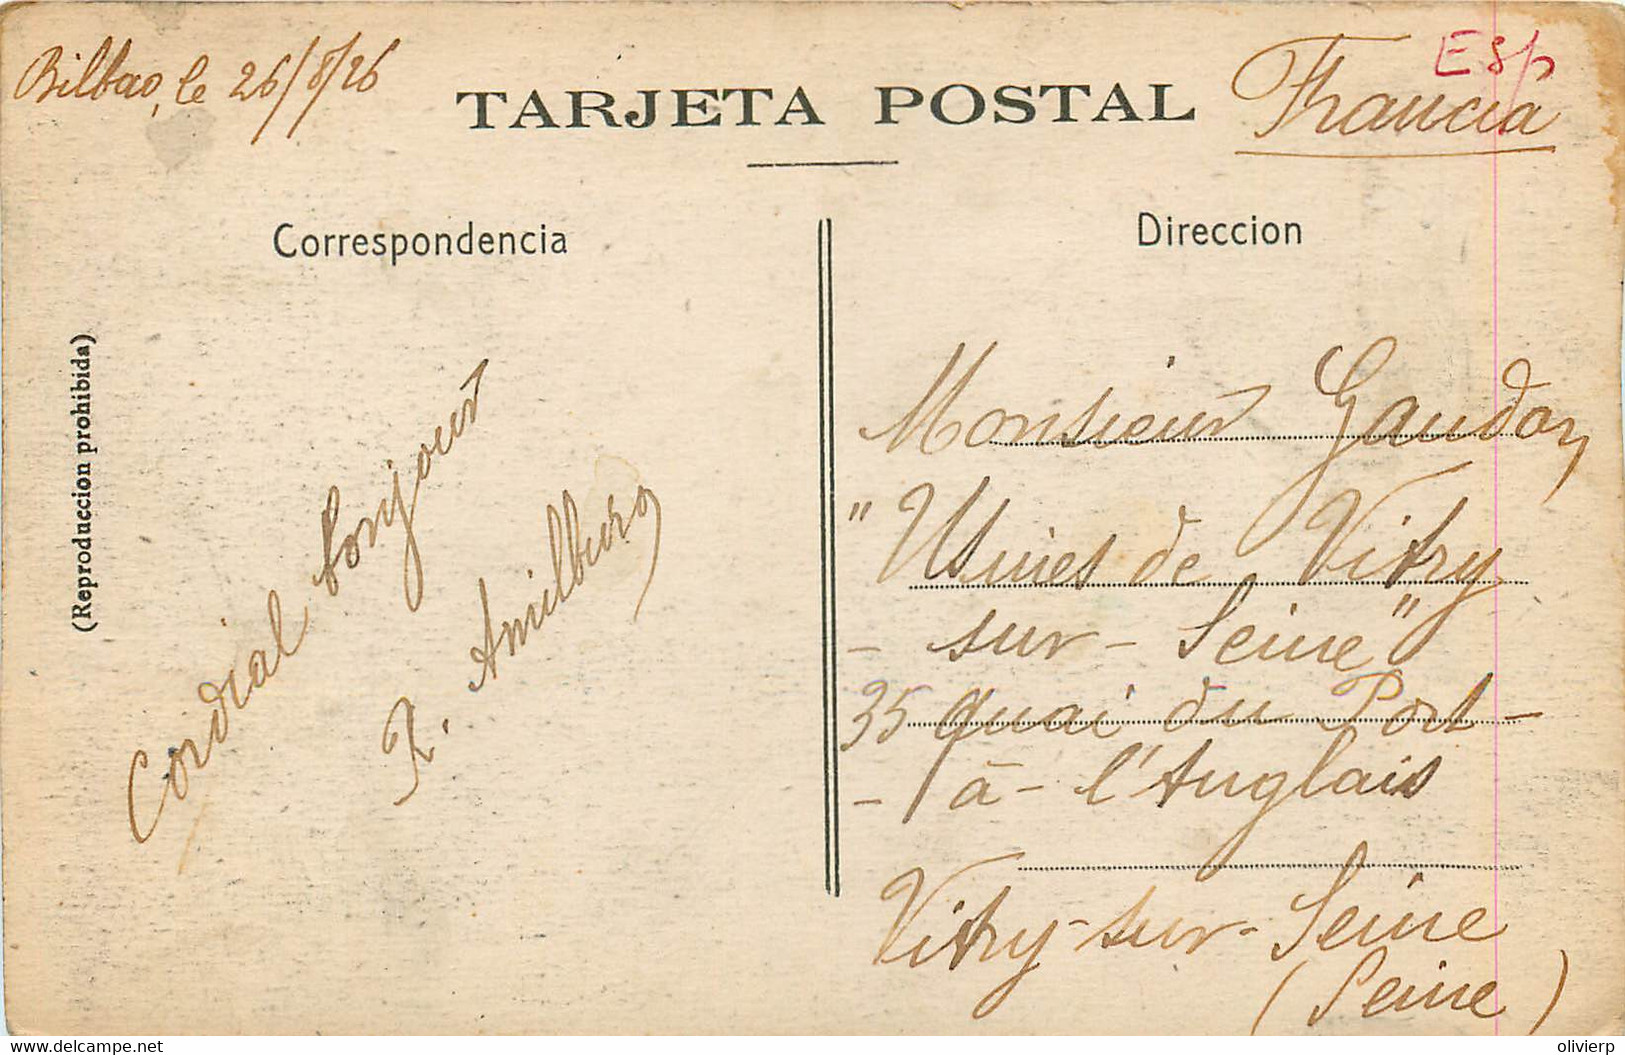 Bilbao, le 26/8/26
TARJETA POSTAL
Esp
Francia
Correspondencia
Direccion
(Reproduccion prohibida)
Cordial bonjour
Monsieur Gaudon,
"Usines de Vitry
- sur - Seine"
35 quai du Port -
- à - l'Anglais
Vitry-sur-Seine
(Seine)
delcampe.net
olivierp